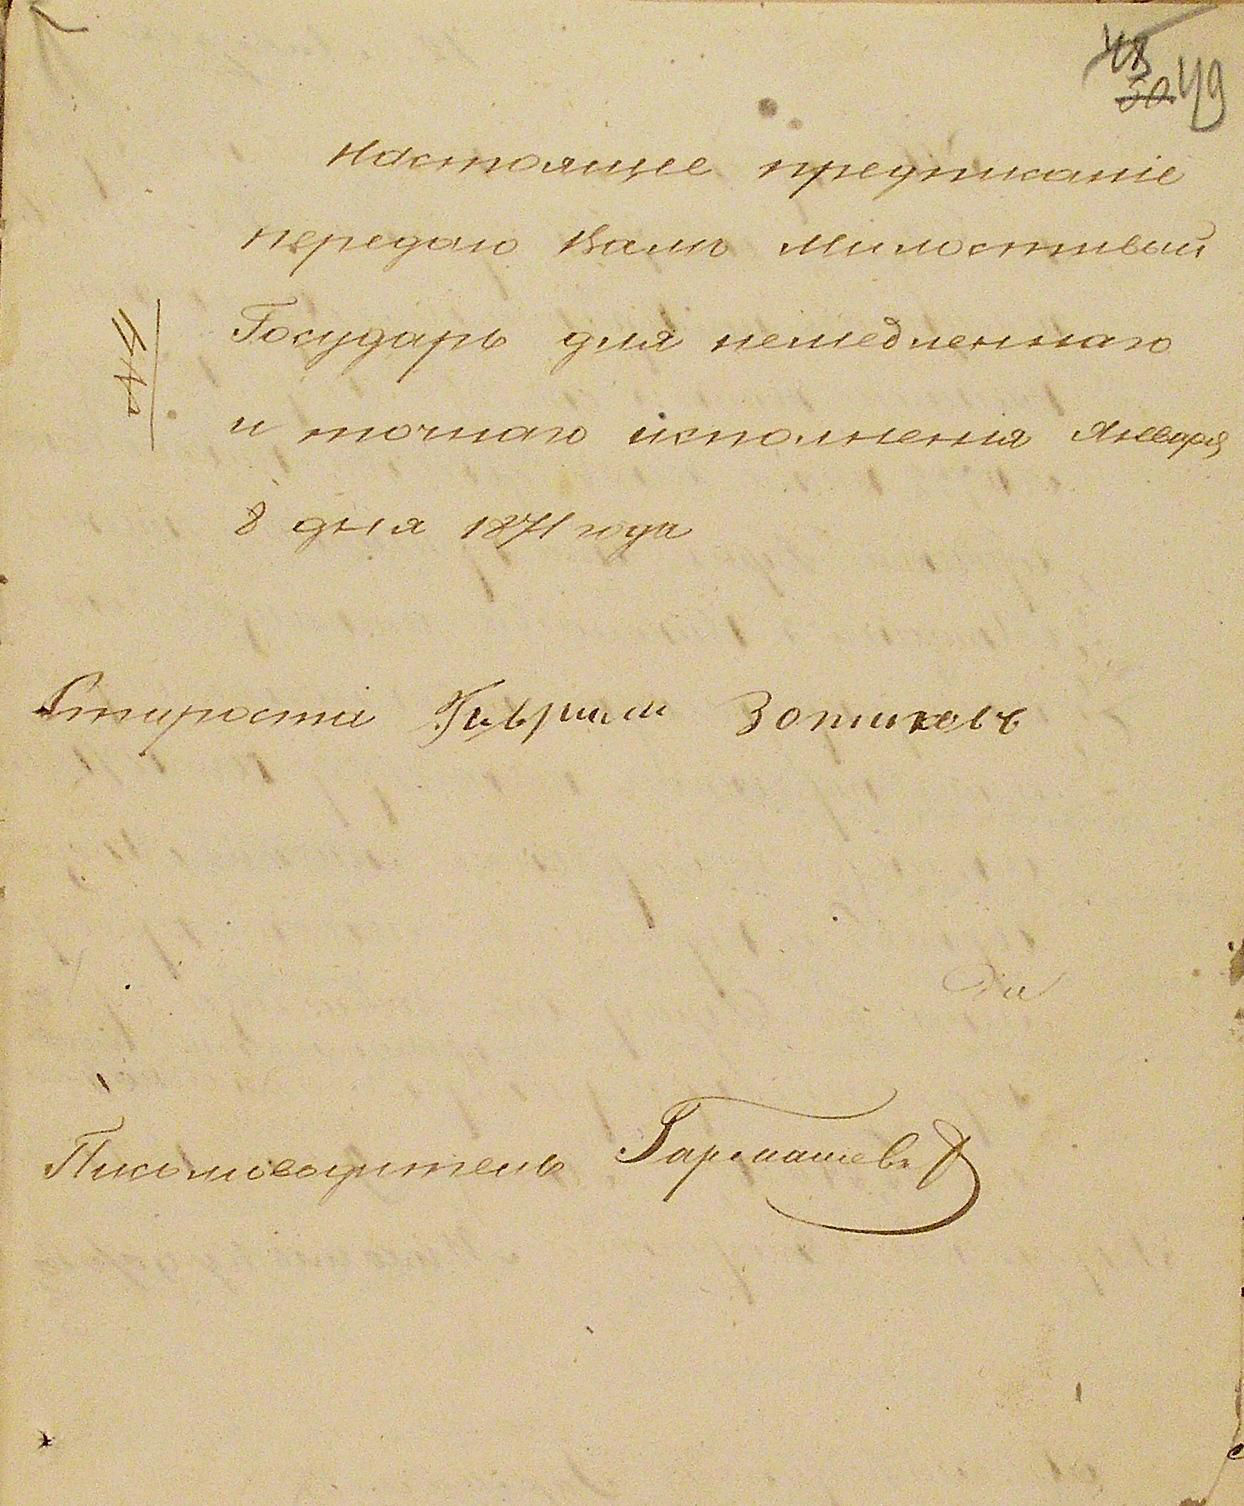 48
50 49
Настоящее предписаніе
передаю Вамъ Милостивый
Государь для немедленнаго
и точнаго исполненія Января
8 дня 1871 года
№ 11
Староста Гаврили Зотиковъ
Письмоводитель Гармашевъ